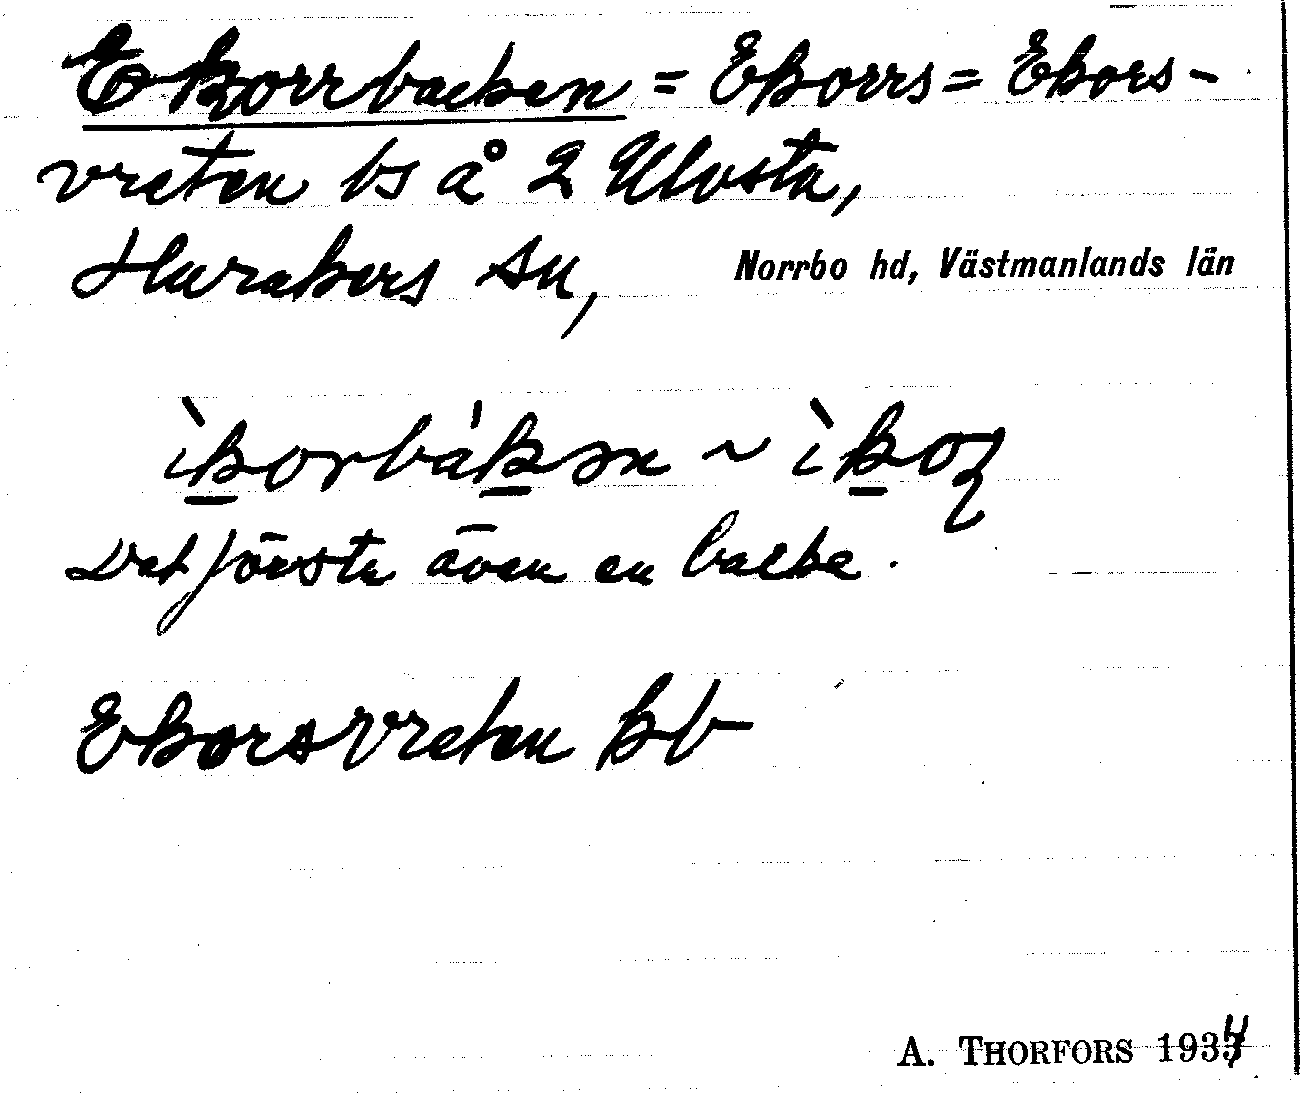 Ekorrbacken = Ekorrs = Ekors-
vreten bs å 2 Ulvsta,
Harakers sn, Norrbo hd, Västmanlands län
ìkorbákən ~ ìkoʂ
Det första även en backe.
Ekorsvreten kb
A. THORFORS 1934